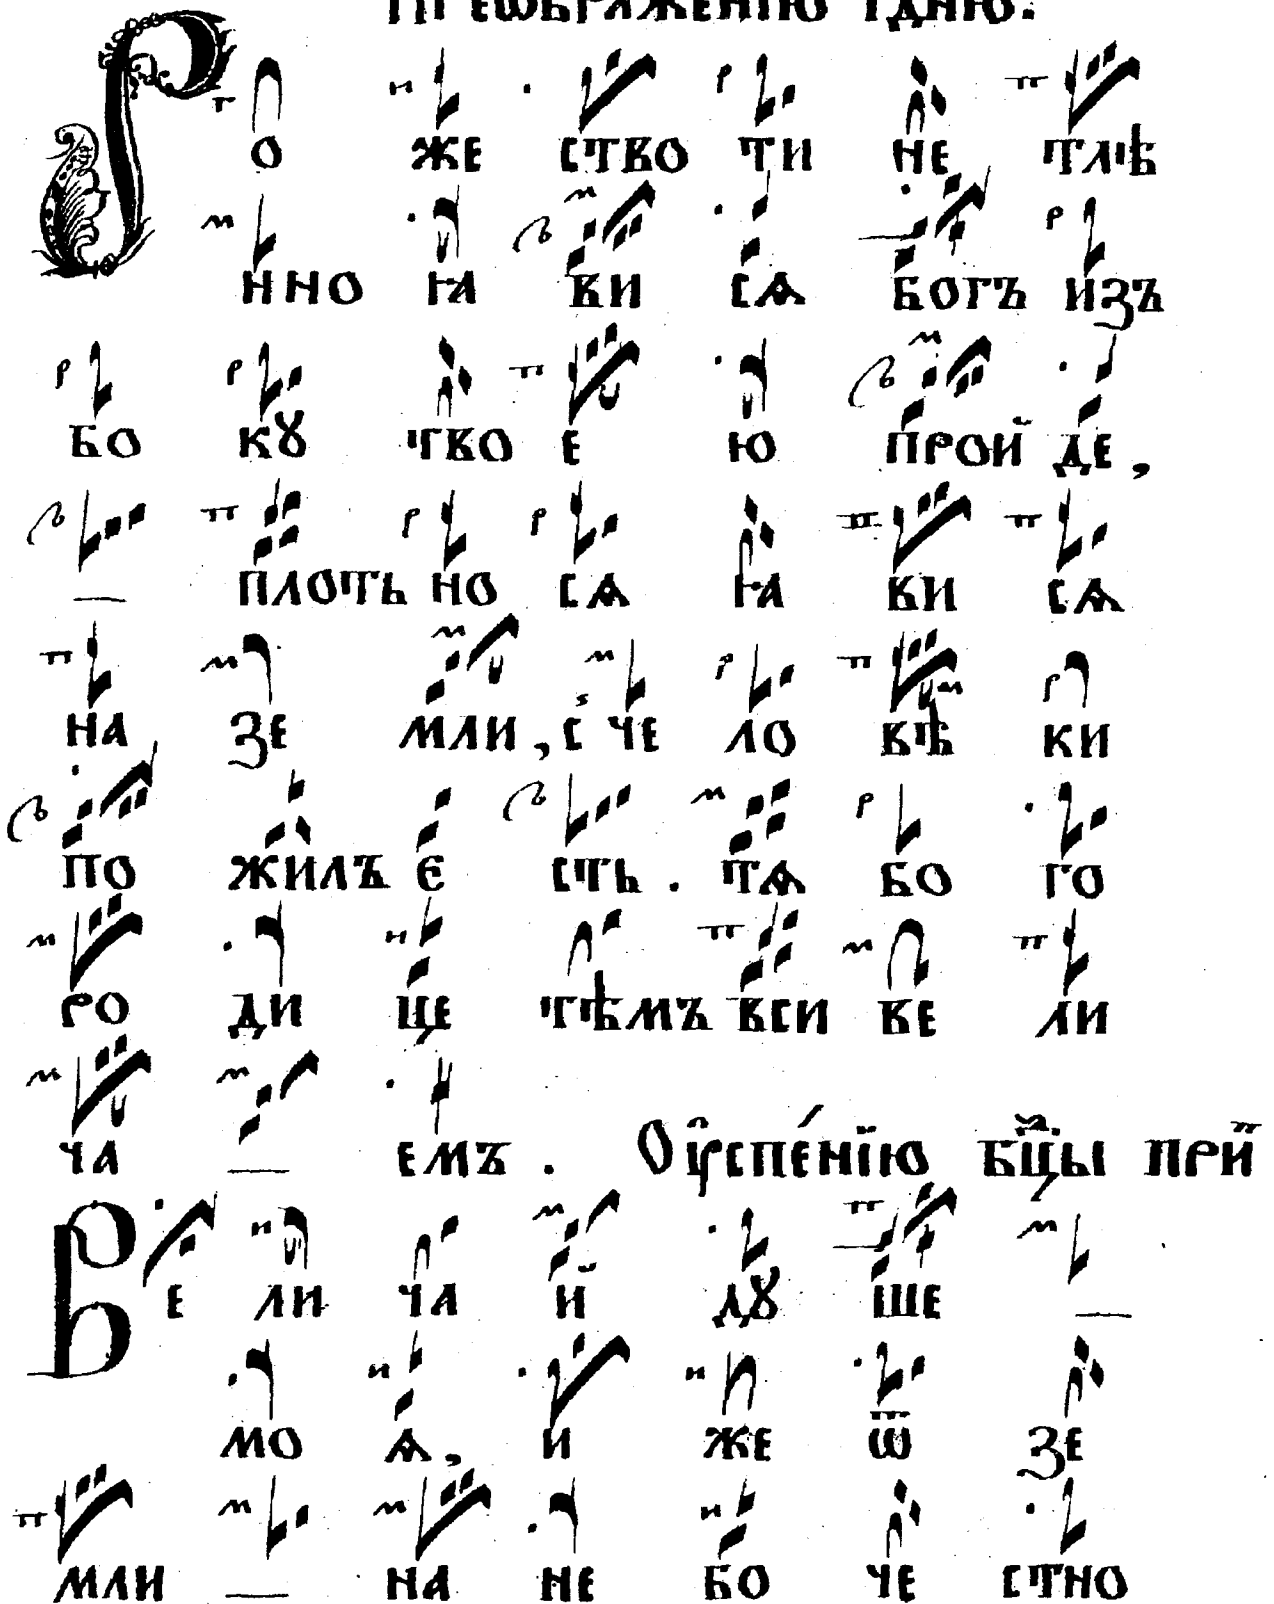 ПРЕѠБРАЖЕНІЮ ГДНЮ.
РО ЖЕ СТВО ТИ НЕ ТЛѢ
ННО ꙖВИ СѦ БОГЪ ИЗЪ
БО КꙊ ТВО Е Ю ПРОЙ ДЕ,
— ПЛОТЬ НО СѦ Ꙗ ВИ СѦ
НА ЗЕ МЛИ, С ЧЕ ЛО ВѢ КИ
ПО ЖИЛЪ Є СТЬ. ТѦ БО ГО
РО ДИ ЦЕ ТѢМЪ ВСИ ВЕ ЛИ
ЧА — ЕМЪ. ОУСПЕ́НЇЮ БЦЫ ПРЙ
ВЕ ЛИ ЧА Й ДꙊ ШЕ —
МО Ѧ, И ЖЕ Ѿ ЗЕ
МЛИ — НА НЕ БО ЧЕ СТНО